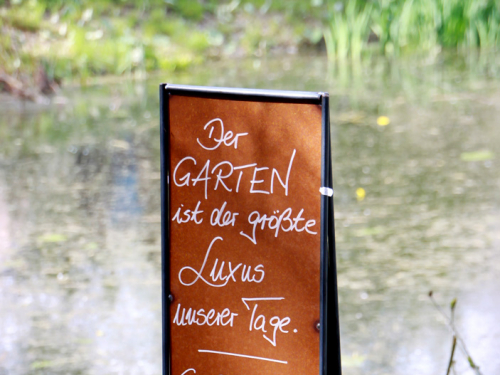 Der
GARTEN
ist der größte
Luxus
unserer Tage.